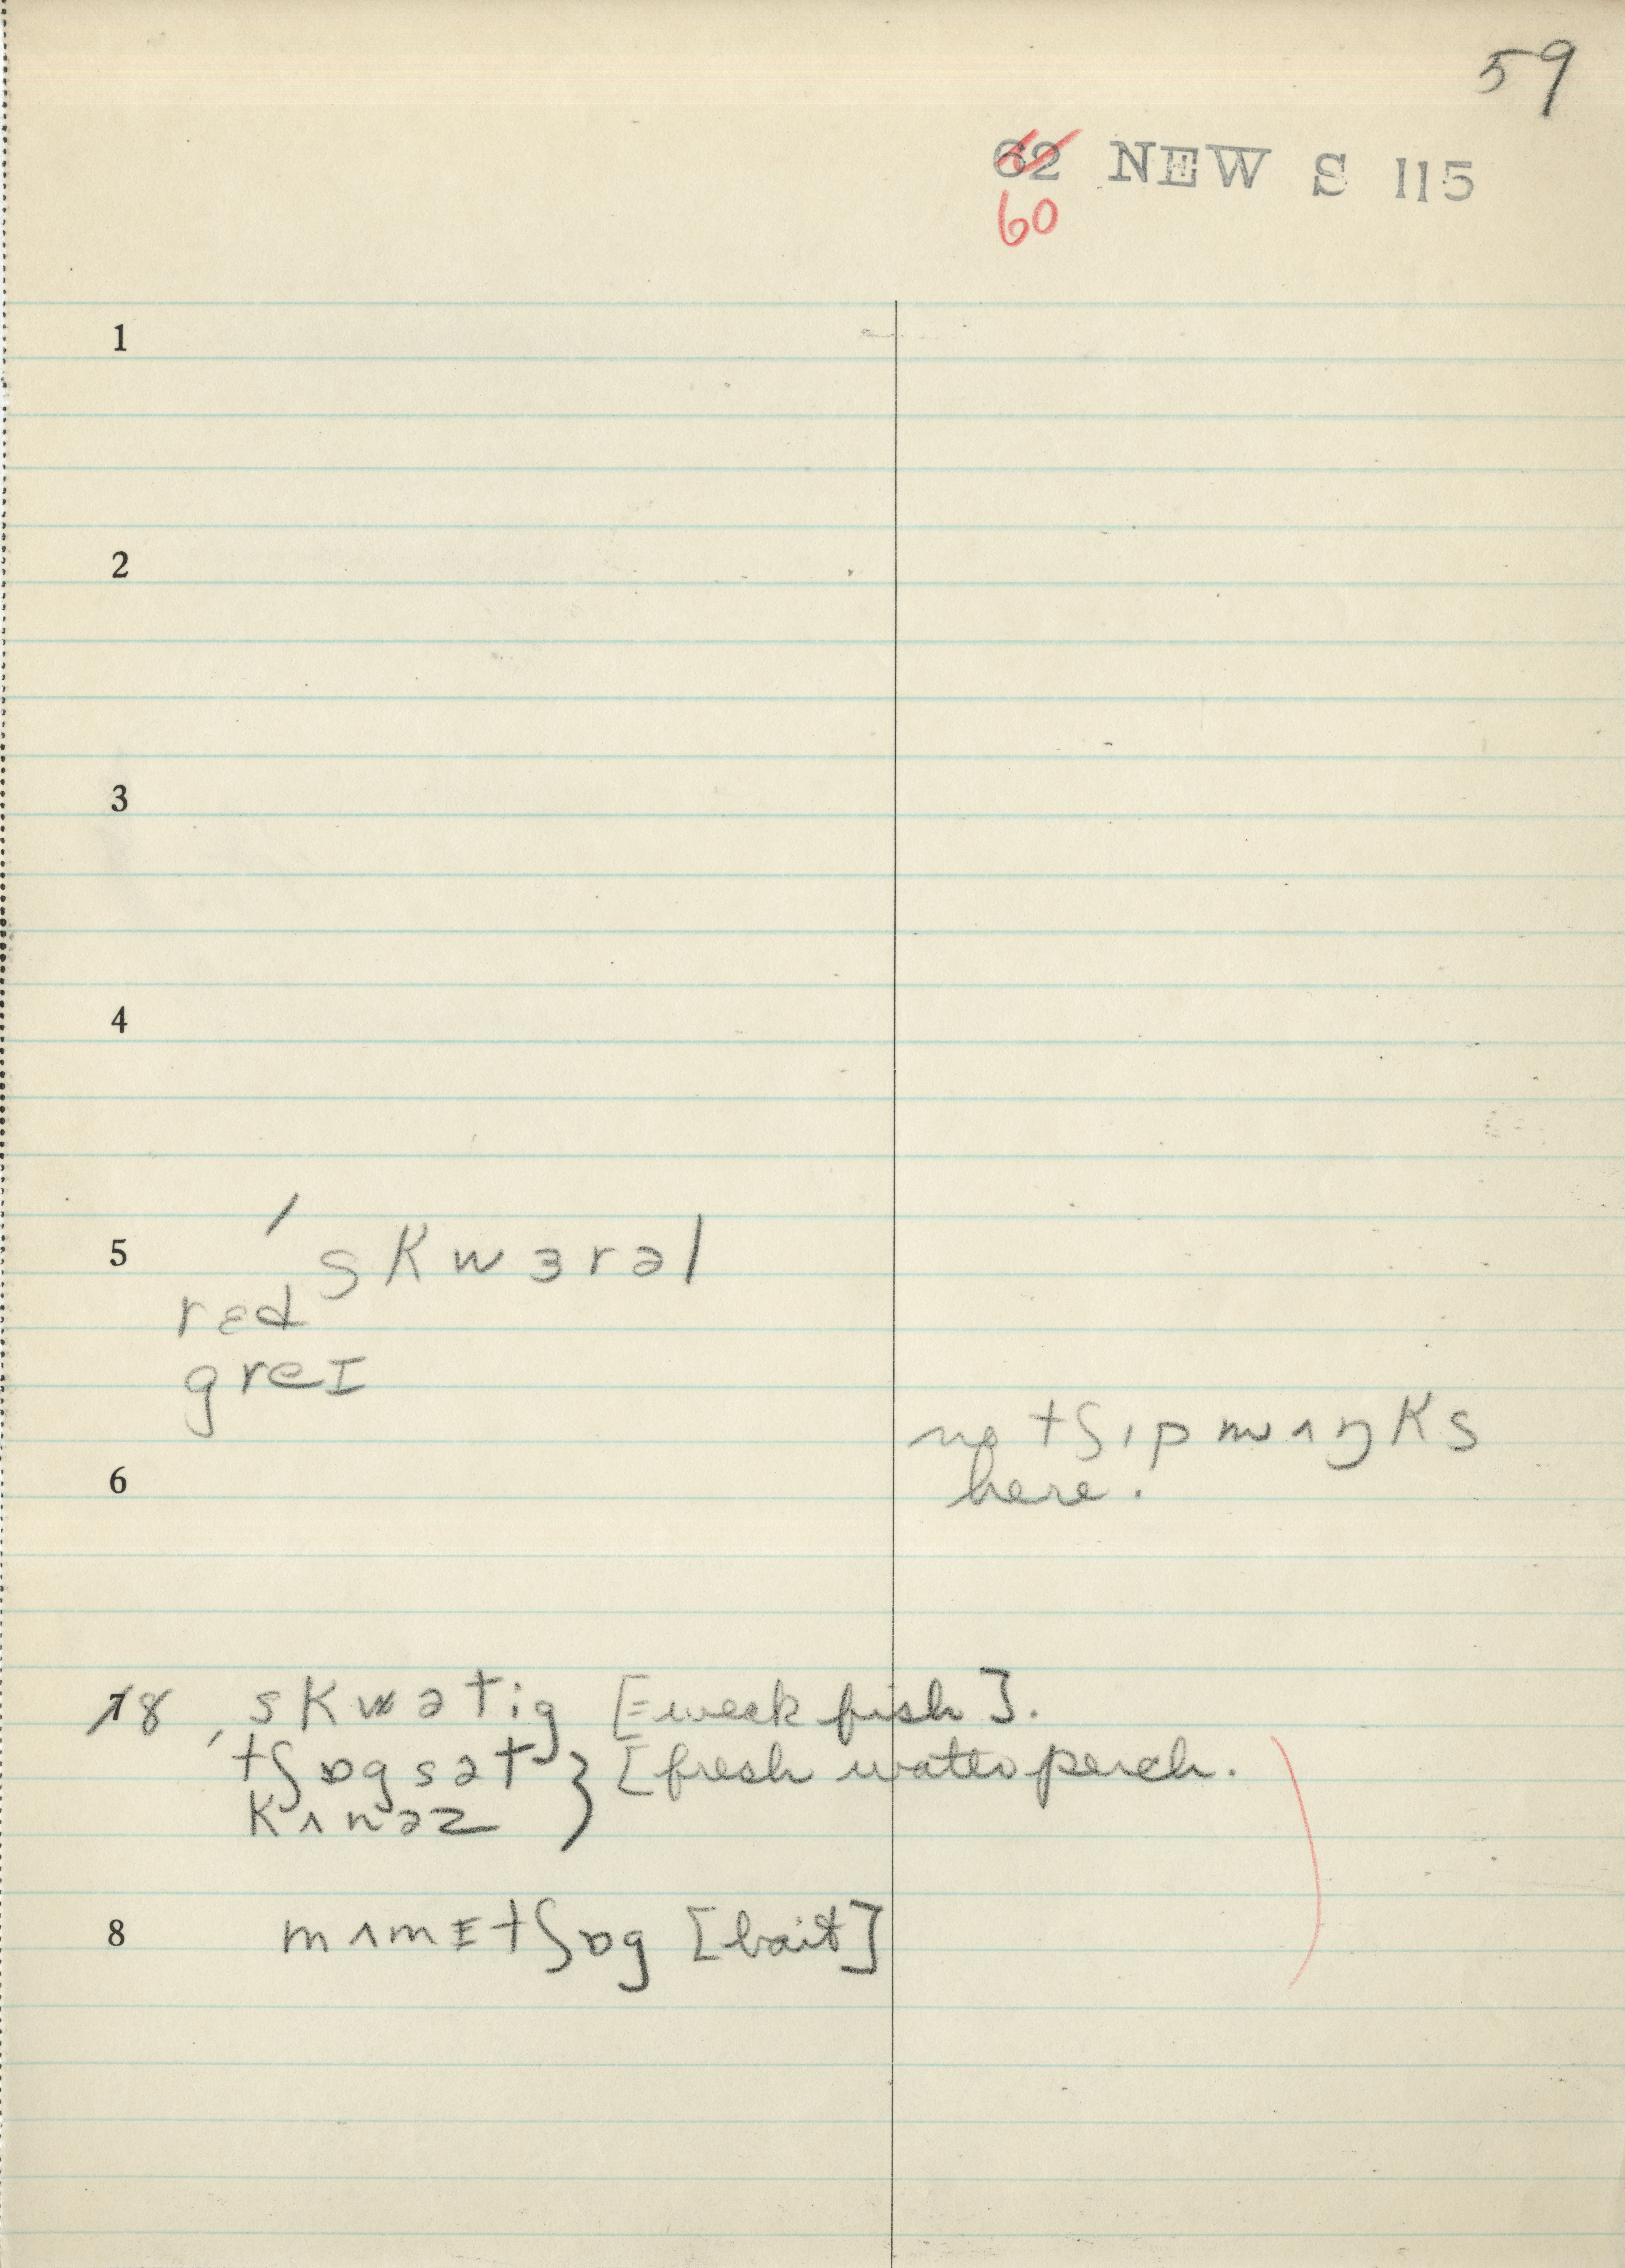 59
62 NEW S 115
60
1
2
3
4
5 ˈskwɜrəl
rɛd
greɪ
no tʃɪpmʌŋks
6 here.
7 8 skwətig [= week fish].
ˈtʃɒgsət } [fresh water perch.
kʌnəz
8 mʌmɪtʃɒg [bait]